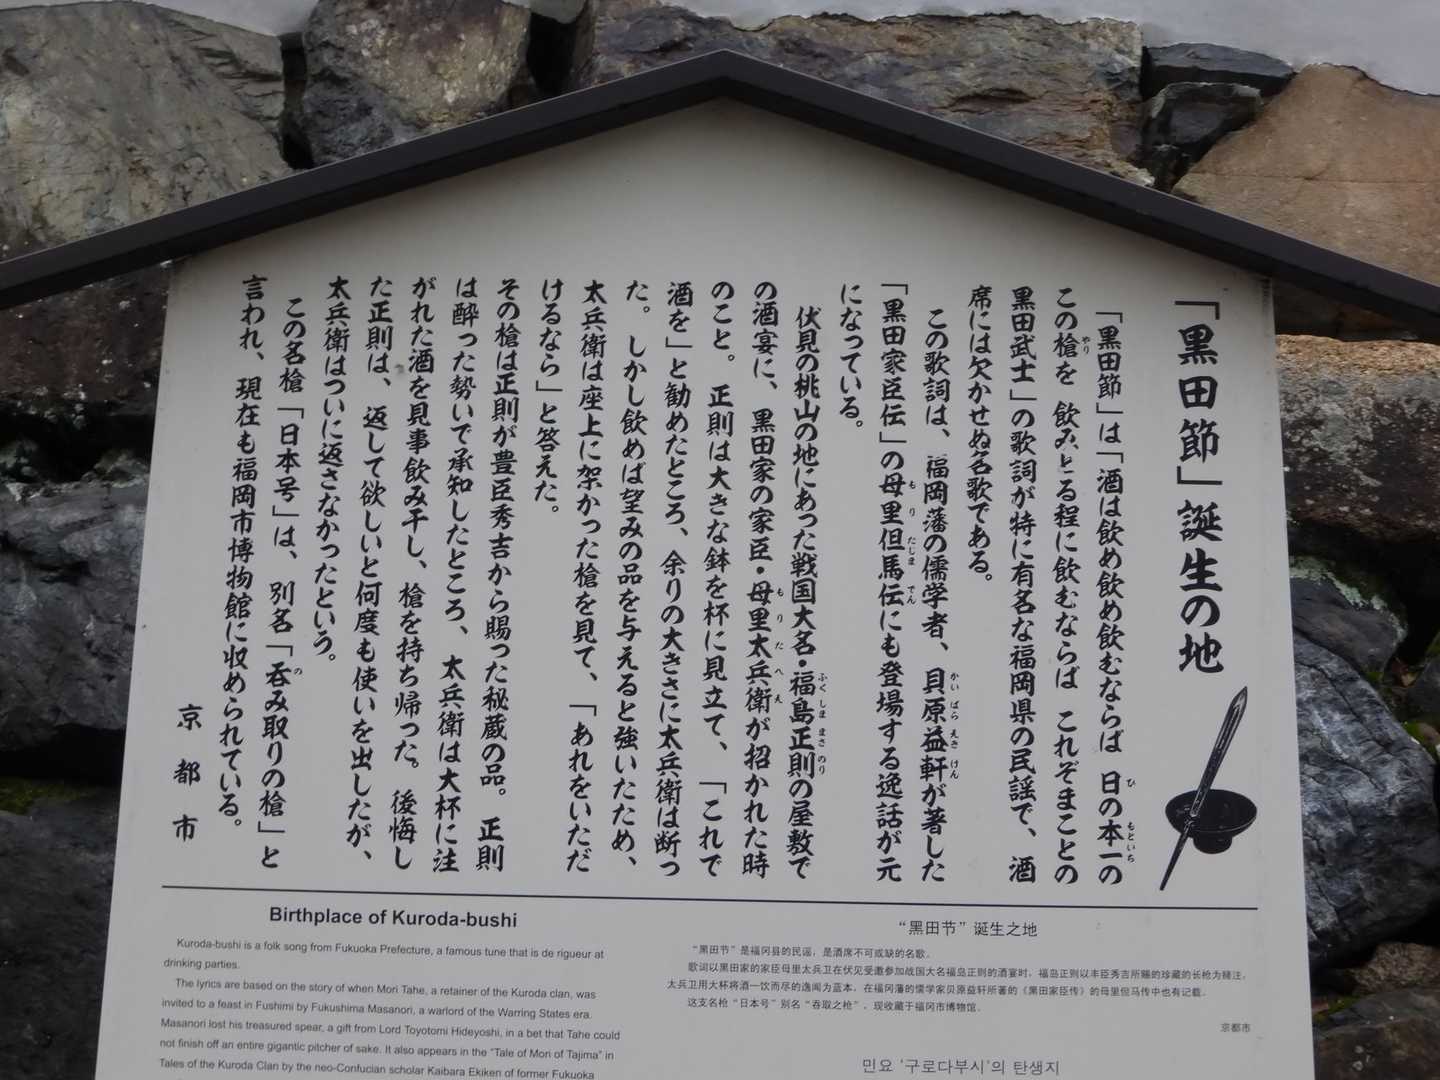 「黒田節」誕生の地
「黒田節」は「酒は飲め飲め飲むならば 日の本一の
この槍を 飲みとる程に飲むならば これぞまことの
黒田武士」の歌詞が特に有名な福岡県の民謡で、酒
席には欠かせぬ名歌である。
この歌詞は、福岡藩の儒学者、貝原益軒が著した
「黒田家臣伝」の母里但馬伝にも登場する逸話が元
になっている。
伏見の桃山の地にあった戦国大名・福島正則の屋敷で
の酒宴に、黒田家の家臣・母里太兵衛が招かれた時
のこと。正則は大きな鉢を杯に見立て、「これで
酒を」と勧めたところ、余りの大きさに太兵衛は断っ
た。しかし飲めば望みの品を与えると強いたため、
太兵衛は座上に架かった槍を見て、「あれをいただ
けるなら」と答えた。
その槍は正則が豊臣秀吉から賜った秘蔵の品。正則
は酔った勢いで承知したところ、太兵衛は大杯に注
がれた酒を見事飲み干し、槍を持ち帰った。後悔し
た正則は、返して欲しいと何度も使いを出したが、
太兵衛はついに返さなかったという。
この名槍「日本号」は、別名「呑み取りの槍」と
言われ、現在も福岡市博物館に収められている。
京都市
Birthplace of Kuroda-bushi
Kuroda-bushi is a folk song from Fukuoka Prefecture, a famous tune that is de rigueur at
drinking parties.
The lyrics are based on the story of when Mori Tahe, a retainer of the Kuroda clan, was
invited to a feast in Fushimi by Fukushima Masanori, a warlord of the Warring States era.
Masanori lost his treasured spear, a gift from Lord Toyotomi Hideyoshi, in a bet that Tahe could
not finish off an entire gigantic pitcher of sake. It also appears in the "Tale of Mori of Tajima" in
Tales of the Kuroda Clan by the neo-Confucian scholar Kaibara Ekiken of former Fukuoka
“黑田节”诞生之地
“黑田节”是福冈县的民谣，是酒席不可或缺的名歌。
歌词以黑田家的家臣母里太兵卫在伏见受邀参加战国大名福岛正则的酒宴时，福岛正则以丰臣秀吉所赐的珍藏的长枪为赌注，
太兵卫用大杯将酒一饮而尽的逸闻为蓝本，在福冈藩的儒学家贝原益轩所著的《黑田家臣传》的母里但马传中也有记载。
这支名枪“日本号”别名“吞取之枪”，现收藏于福冈市博物馆。
京都市
민요 '구로다부시'의 탄생지